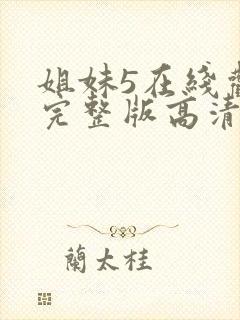 姐妹5在綫觀
完整版高清
蘭太桂